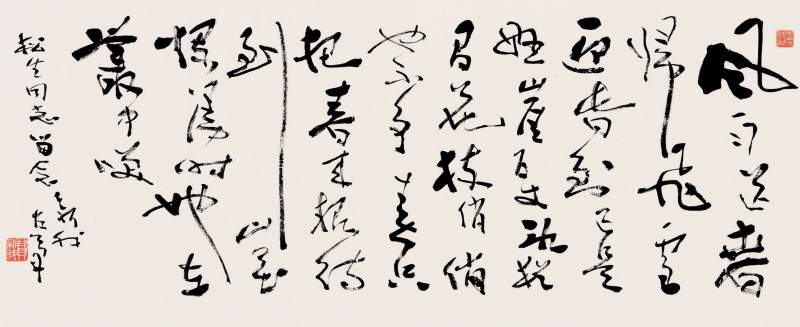 風雨送春
歸飛雪
迎春到已是
懸崖百丈冰猶
有花枝俏俏
也不争春只
把春來報待
到山花
爛漫时她在
叢中咲
松生同志留念